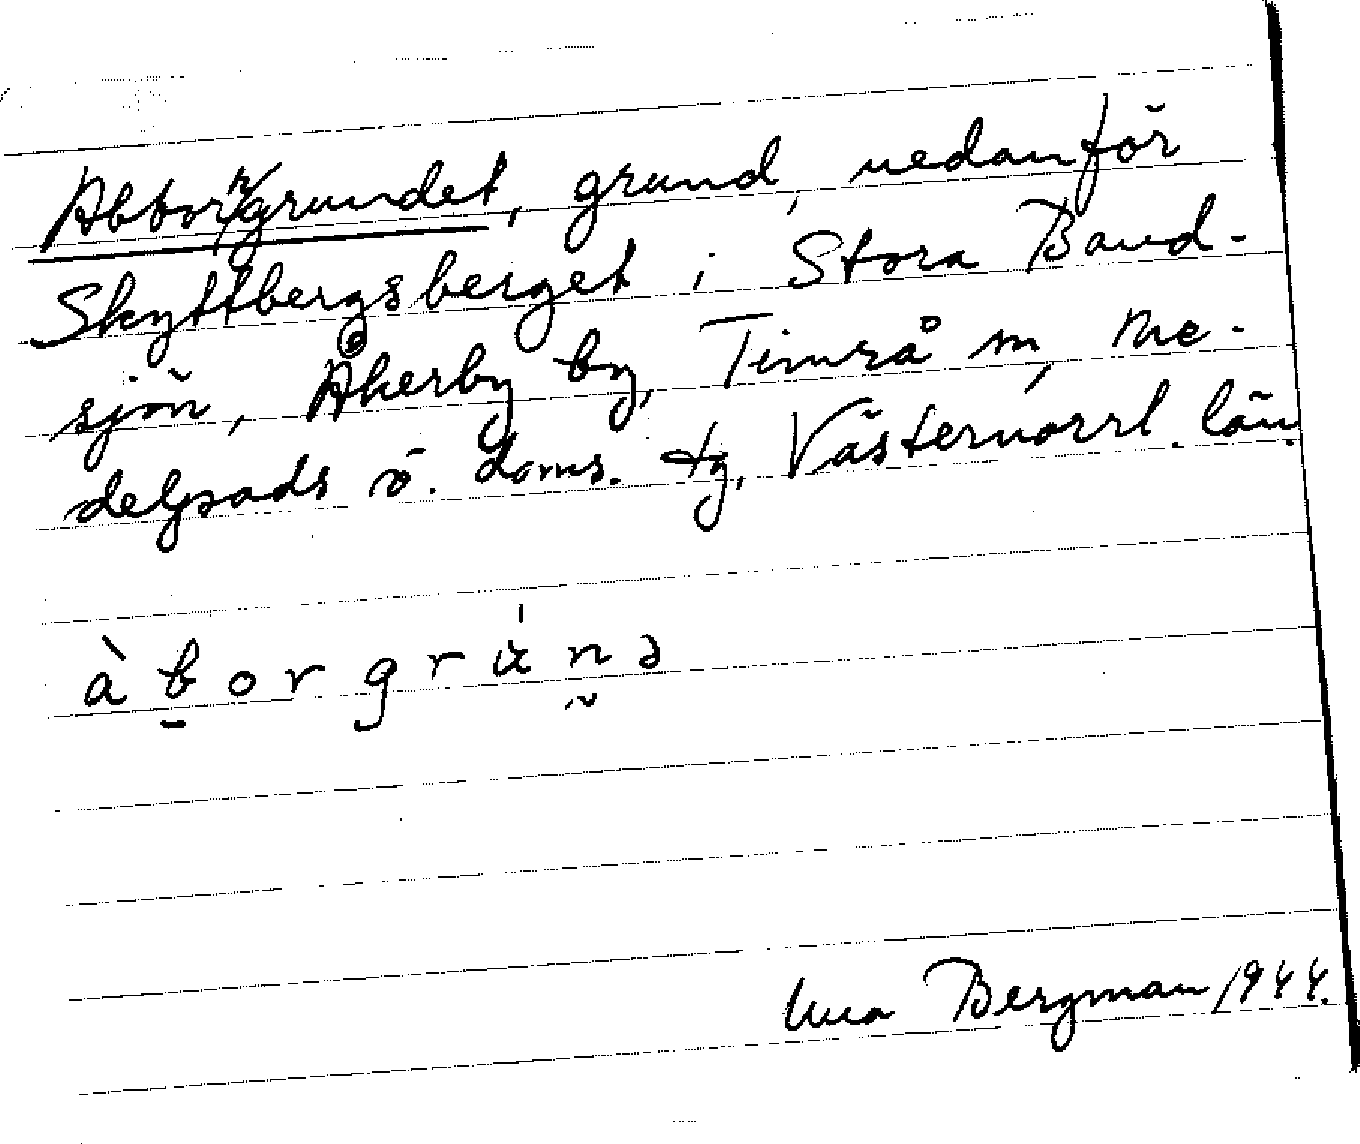 Abborrgrundet, grund, nedanför
Skyttbergsberget i Stora Band-
sjön, Åkerby by, Timrå sn, Me-
delpads ö. doms. tg, Västernorrl. län.
àborgrùnə
Una Bergman 1944.